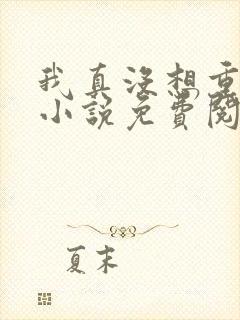 我真没想重
小说免费阅
夏末